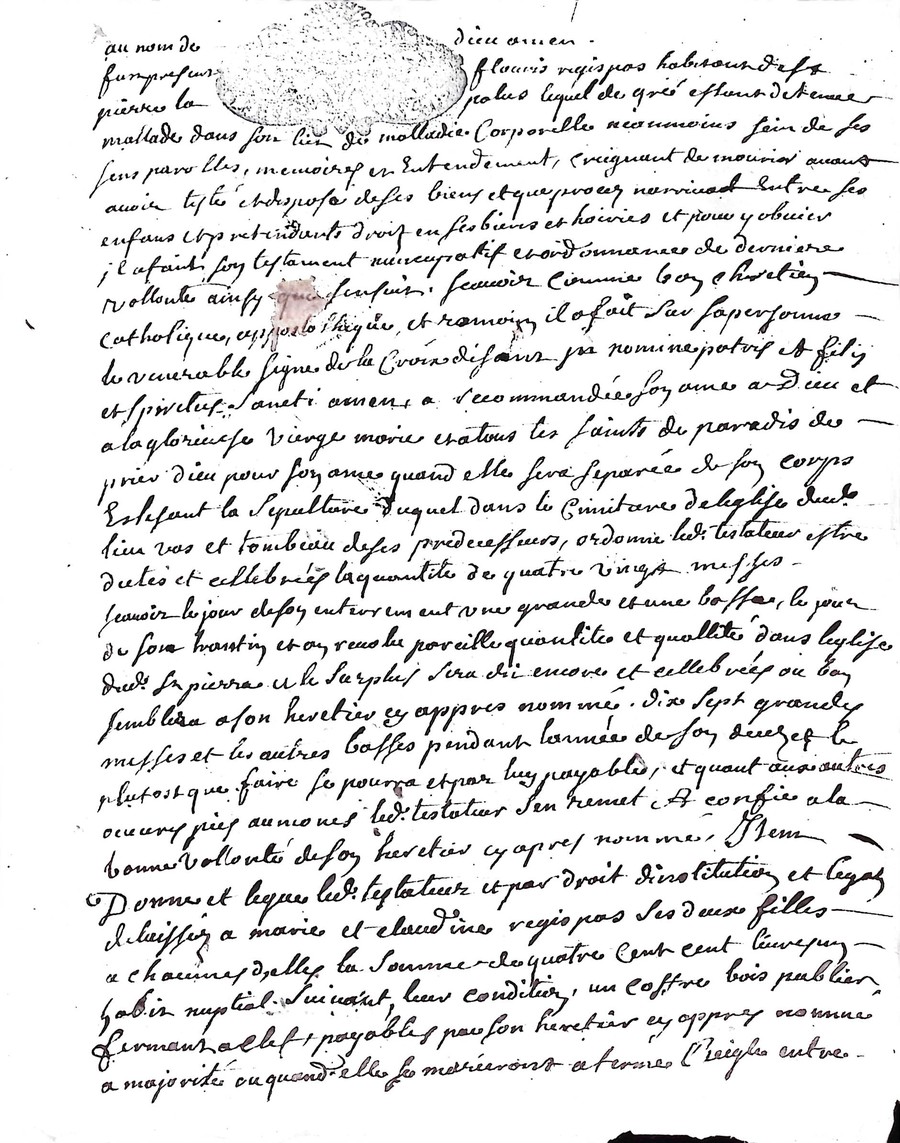 au nom de dieu amen.
fut present flouris regispas habitant de st
pierre la palus lequel de gré estant detenue
mallade dans son lict de malladie Corporelle neanmoins sein de ses
sens parolles, memoires et Entendement, Craignant de mourir avant
avoir testé et disposé de ses biens et que procez n'arrivat Entre ses
enfans et pretendants droit en ses biens et hoiries et pour y obuier
jl a fait son testament nuncupatif et ordonnance de derniere
vollonté ainsy que sensuit. scavoir Comme bon chretien
Catholique, appostolhique, et romain il a fait sur sa personne
le venerable signe de la Croix disant jn nomine patris et filij
et spiritus Sancti amen, a recommandée son ame a Dieu et
a la glorieuse vierge marie et a tous les saints de paradis de
prier dieu pour son ame quand elle sera separée de son corps
Eslisant la sepulture duquel dans le Cimitaire de leglise dud.
lieu vas et tombeau de ses predecesseurs, ordonne led. testateur estre
dictes et cellebrées la quantité de quatre vingt messes
scavoir le jour de son enterrement une grande et une basse, le jour
de son et pareille quantité et quallité dans leglise
dud. St pierre et le surplus sera dit encore et cellebrées ou bon
semblera a son heretier cy appres nommé. dix sept grandes
messes et les autres basses pendant lannée de son decez et le
plutost que faire se pourra et par luy payable, et quant aux autres
oeuvres pies aumones led. testateur s'en remet et confie a la
bonne vollonté de son heretier cy apres nommé, Item
Donne et legue led. testateur et par droit d'institution et legat
delaissé a marie et claudine regispas ses deux filles
a chacunes d'elles la somme de quatre Cent cent livres un
habit nuptial suivant leur condition, un coffre bois publier
fermant a clef, payables par son heretier cy appres nommé
a majorité ou quand elle se marieront a terme Reiglé entre